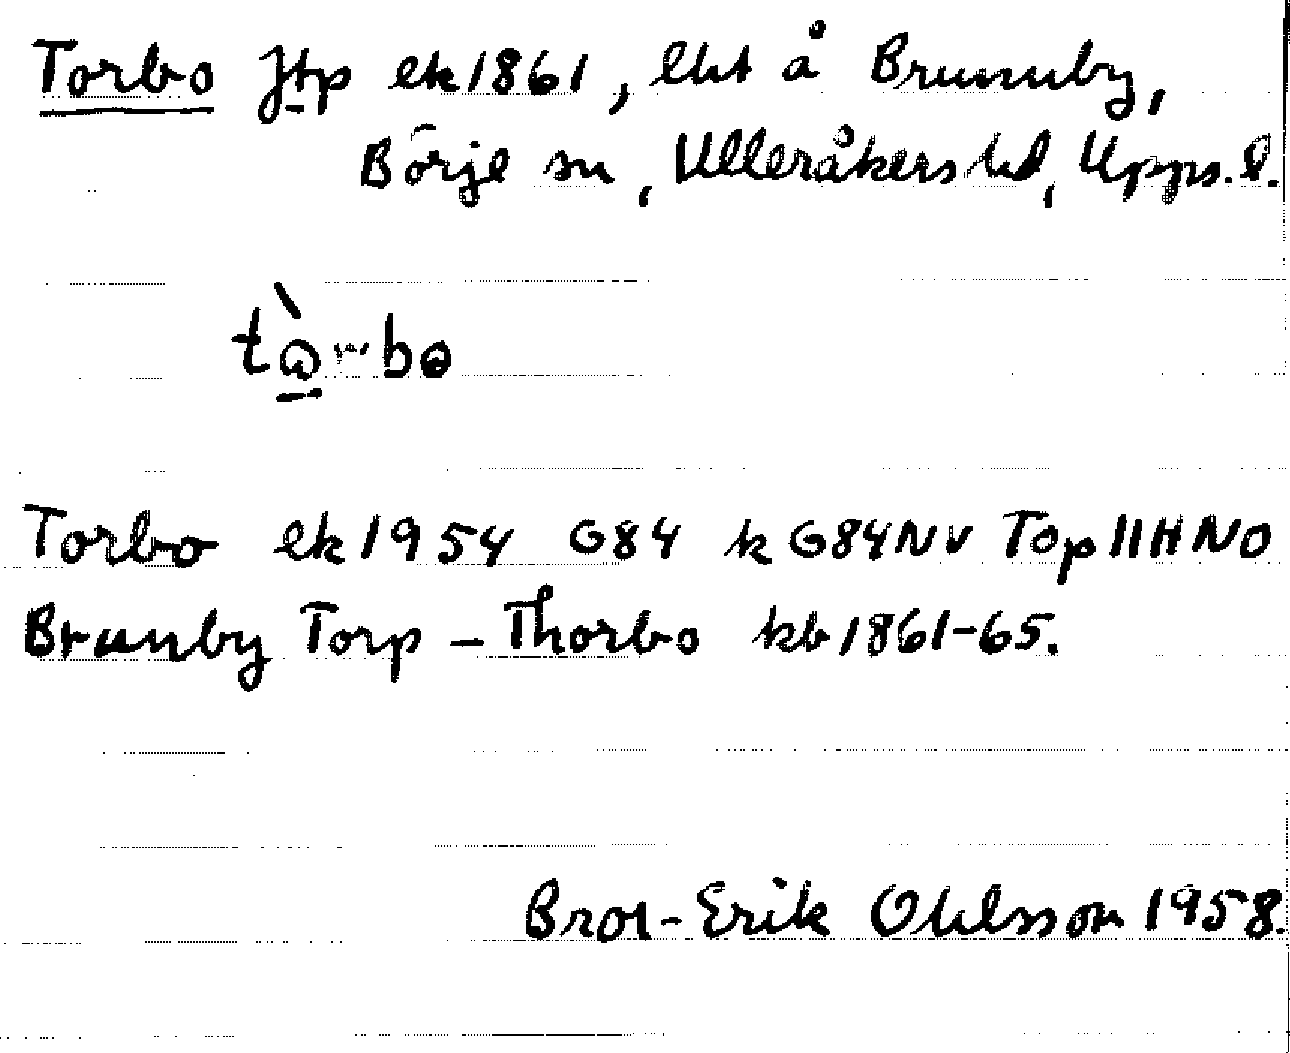 Torbo Jtp ek 1861, lht å Brunnby,
Börje sn, Ulleråkers hd, Upps. l.
Torbo ek 1954 G84 k G84NV Top 11HNO
Brunnby Torp – Thorbo kb 1861-65.
Bror-Erik Ohlsson 1958.